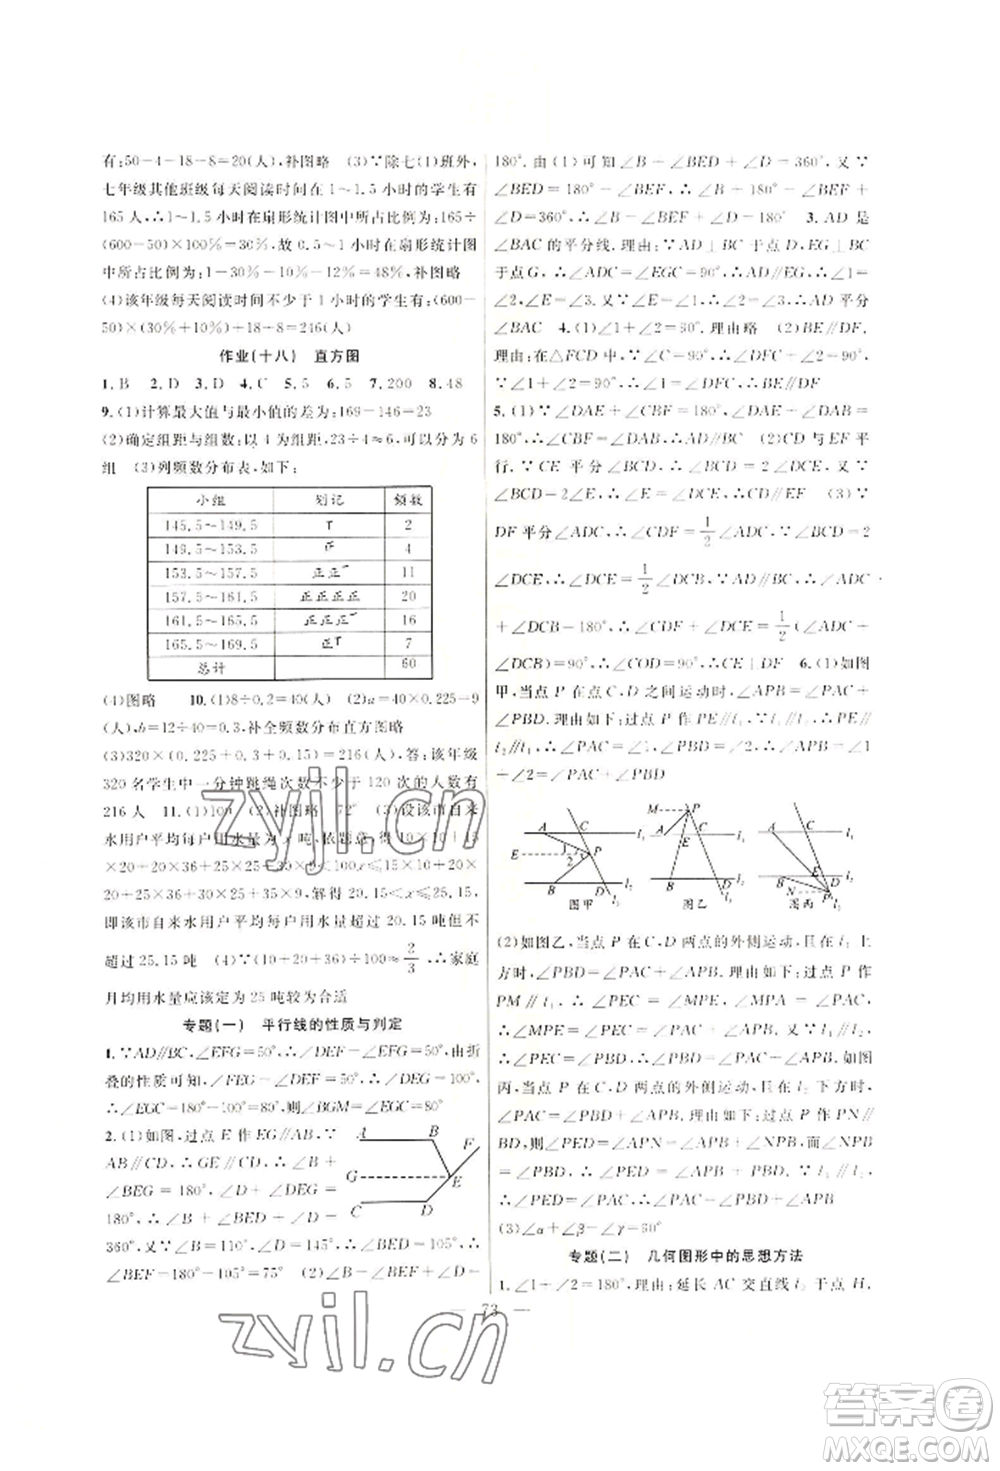 有:50-4-18-8=20(人),补图略 (3)∵除七(1)班外,
七年级其他班级每天阅读时间在 1~1.5 小时的学生有
165 人,∴1~1.5 小时在扇形统计图中所占比例为:165÷
(600-50)×100%=30%,故 0.5~1 小时在扇形统计图
中所占比例为:1-30%-10%-12%=48%,补图略
(4)该年级每天阅读时间不少于 1 小时的学生有:(600-
50)×(30%+10%)+18+8=246(人)
作业(十八) 直方图
1.B 2.D 3.D 4.C 5.5 6.5 7.200 8.48
9.(1)计算最大值与最小值的差为:169-146=23
(2)确定组距与组数:以 4 为组距,23÷4≈6,可以分为 6
组 (3)列频数分布表,如下:
小组 划记 频数
145.5~149.5 2
149.5~153.5 正 4
153.5~157.5 正正 11
157.5~161.5 正正正正 20
161.5~165.5 正正正 16
165.5~169.5 正 7
总计 60
(4)图略 10.(1)8÷0.2=40(人) (2)a=40×0.225=9
(人),b=12÷40=0.3,补全频数分布直方图略
(3)320×(0.225+0.3+0.15)=216(人),答:该年级
320 名学生中一分钟跳绳次数不少于 120 次的人数有
216 人 11.(1)100 (2)补图略 72° (3)设该市自来
水用户平均每户用水量为 x 吨,依题意,得:(10×10+15
×20+20×36+25×30+30×
即该市自来水用户平均每户用水量超过 20.15 吨但不
超过 25.15 吨 (4)∵(10+20+36)÷100≈2/3,∴家庭
月均用水量应该定为 25 吨较为合适
专题(一) 平行线的性质与判定
1.∵AD∥BC,∠EFG=50°,∴∠DEF=∠EFG=50°,由折
叠的性质可知,∠FEG=∠DEF=50°,∴∠DEG=100°,
∴∠EGC=180°-100°=80°,则∠BGM=∠EGC=80°
2.(1)如图,过点 E 作 EG∥AB,∵
AB∥CD,∴GE∥CD,∴∠B+
∠BEG=180°,∠D+∠DEG=
180°,∴∠B+∠BED+∠D=
360°,又∵∠B+∠D=145°,∴∠BED=105°,
∴∠BEF=180°-105°=75° (2)∵∠B+∠BEF+∠D=
A B F
G E
C D
180°.由(1)可知∠B+∠BED+∠D=360°,又∵
∠BED=180°-∠BEF,∴∠B+180°-∠BEF+
∠D=360°,∴∠B-∠BEF+∠D=180° 3.AD 是
∠BAC 的平分线.理由:∵AD⊥BC 于点 D,EG⊥BC
于点 G,∴∠ADC=∠EGC=90°,∴AD∥EG,∴∠1=
∠2,∠E=∠3,又∵∠E=∠1,∴∠2=∠3,∴AD 平分
∠BAC 4.(1)∠1+∠2=90°,理由略 (2)BE∥DF.
理由:在△FCD 中,∵∠C=90°,∴∠3+∠2=90°,
∵∠1+∠2=90°,∴∠1=∠3,∴BE∥DF
5.(1)∵∠DAE+∠CBF=180°,∠DAE+∠DAB=
180°,∴∠CBF=∠DAB,∴AD∥BC (2)CD 与 EF 平
行.∵CE 平分∠BCD,∴∠BCE=∠DCE,又∵
∠BCD=2∠E,∴∠E=∠DCE,∴CD∥EF (3)∵
DF平分∠ADC,∴∠CDF=1/2∠ADC,∵∠BCD=2
∠DCE,∴∠DCE=1/2∠DCB,∵AD∥BC,∴∠ADC
+∠DCB=180°,∴∠CDF+∠DCE=1/2(∠ADC+
∠DCB)=90°,∴∠COD=90°,∴CE⊥DF 6.(1)如图
甲,当点 P 在 C、D 之间运动时,∠APB=∠PAC+
∠PBD.理由如下:过点 P 作 PE∥l₁,∵l₁∥l₂,∴PE∥
l₂∥l₁,∴∠PAC=∠1,∠PBD=∠2,∴∠APB=∠1
+∠2=∠PAC+∠PBD
A C l₁ E P 1 2 B D l₂ 图甲
M P A C l₁ E B D l₂ 图乙
A C l₁ E B D l₂ N P 图丙
(2)如图乙,当点 P 在 C、D 两点的外侧运动,且在 l₁ 上
方时,∠PBD=∠PAC+∠APB.理由如下:过点 P 作
PM∥l₁,∴∠MPE=∠PEC,∠MPA=∠PAC,又∵
∠MPE=∠MPA+∠APB,∴∠MPE=∠PAC+∠APB,
∴∠PEC=∠PBD,∴∠PBD=∠PAC+∠APB;如图
丙,当点 P 在 C、D 两点的外侧运动,且在 l₂ 下方时,
∠PAC=∠PBD+∠APB.理由如下:过点 P 作 PN∥
BD,则∠PBD=∠APN=∠PBD+∠APB,
∴∠PED=∠PAC,∴∠PAC=∠PBD+∠APB
(3)∠α+∠β-∠γ=90°
专题(二) 几何图形中的思想方法
1.∠1+∠2=180°,理由:延长 AC 交直线 l₂ 于点 H,
— 73 —
zyjl.cn
zyjl.cn
答案圈
MXQE.COM